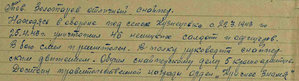 Тов. Золотарев отличный снайпер.
Находясь в обороне под село Кузнецовка с 22.7.43 по
25.11.43 г. уничтожил 46 немецких солдат и офицеров.
В бою смел и решителен. В полку руководит снайпер-
ским движением. Обучил снайперскому делу 6 красноармейцев.
Достоин правительственной награды орден "Красное Знамя"